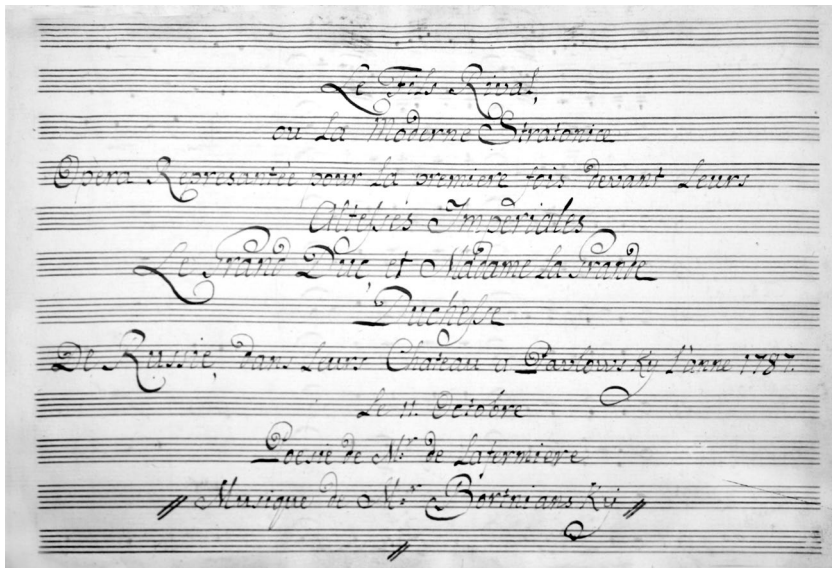 Le Fils Rival,
ou La Moderne Stratonice
Opera Represantée pour La premiere fois devant Leurs
Altesses Imperiales
Le Grand Duc, et Madame La Grande
Duchesse
De Russie, dans Leurs Chateau a Pavlowsky l'anne 1787.
Le 11. Octobre
Poesie de Mr. de Lafermiere
Musique de Mr. Bortniansky